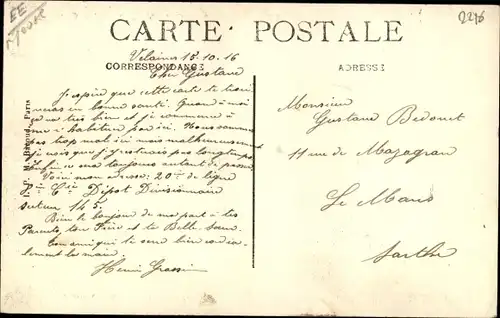 EE
2216
CARTE POSTALE
Velaines 18.10.16
CORRESPONDANCE
ADRESSE
Cher Gustave
J'espère que cette carte te trou
veras en bonne santé. Quand à moi
ça va très bien et je commence à
m'habituer par ici. Nous sommes
pas trop mal ici mais malheureusement
je crois que j'y resterais pas longtemps
enfin ce sera toujours autant de passé
Voici mon adresse: 20e de ligne
Cie Dépôt Divisionnaire
secteur 145.
Bien le bonjour de ma part à tes
Parents, ton Frère et ta Belle Sœur.
Ton ami qui te serre bien cordia-
lement la main
Henri
Paris
Monsieur
Gustave Bedouet
11 rue de Mazagran
Le Mans
Sarthe